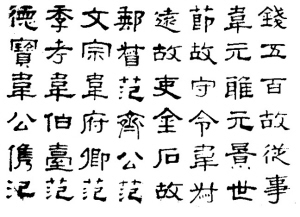 錢五百故從事
韋元雕元景世
節故守令韋為
遠故吏金石故
郵督范齊公范
文宗韋府卿范
季考韋伯臺范
德寶韋公儁氾